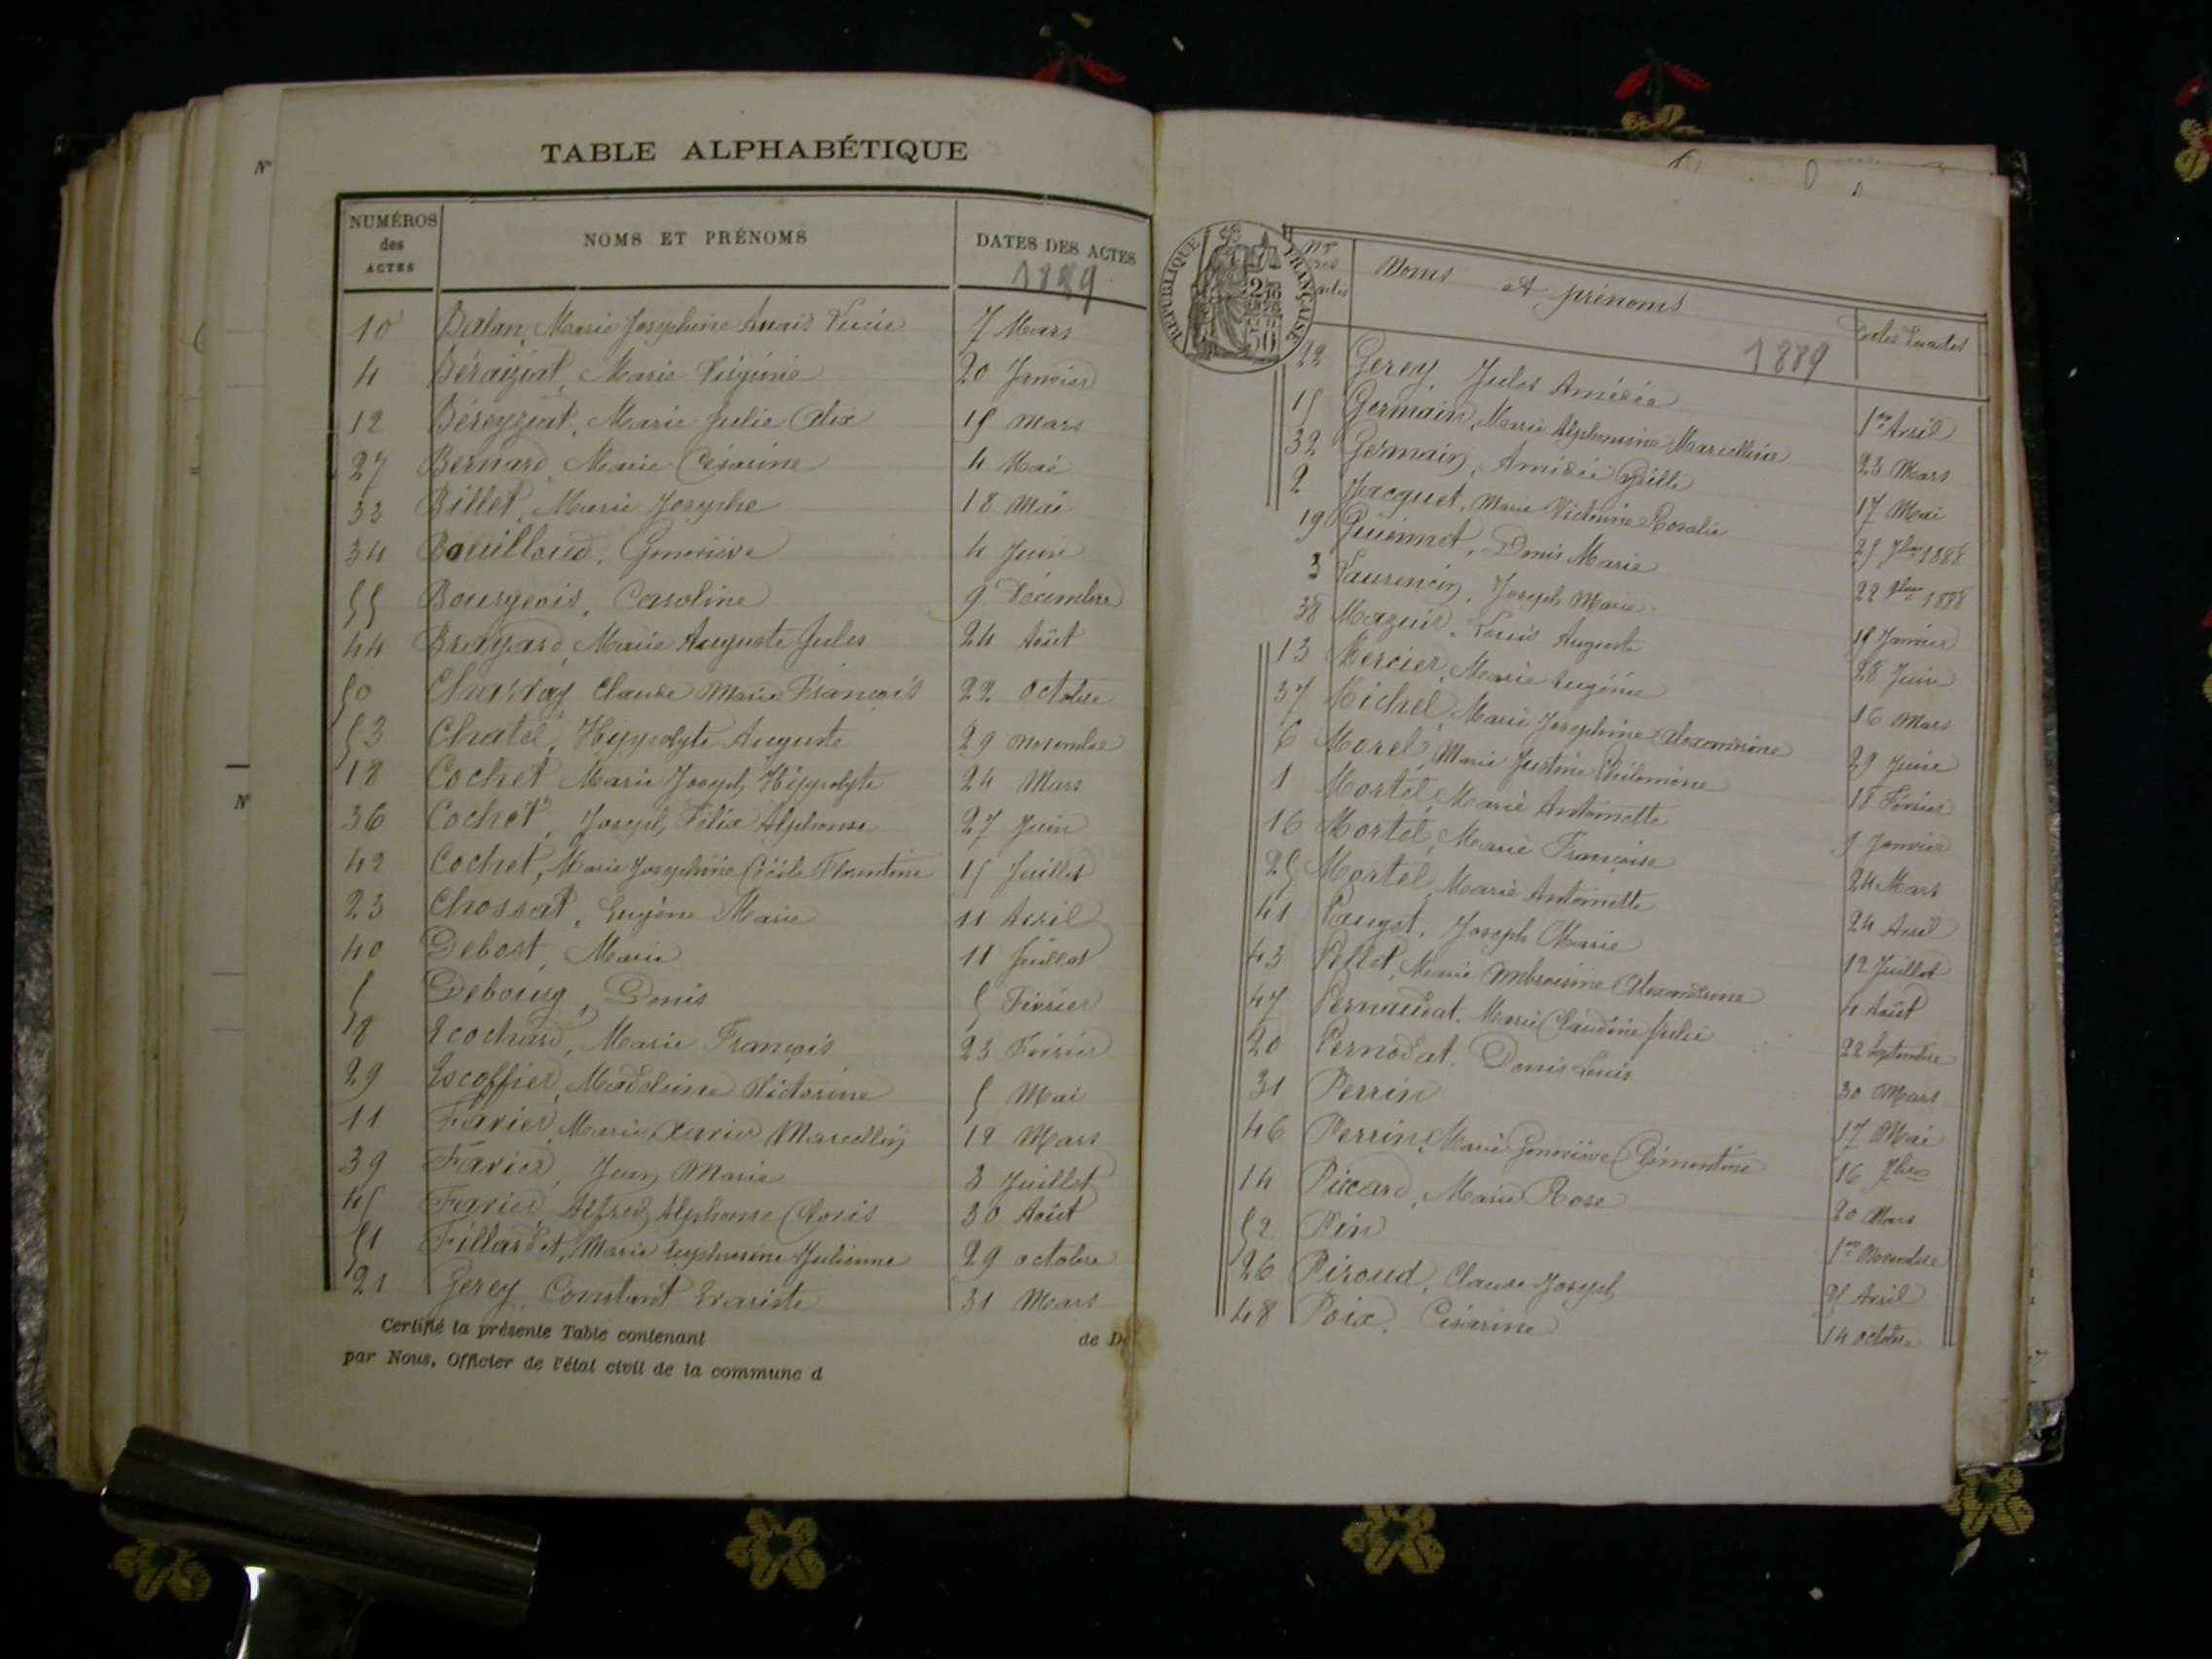 TABLE ALPHABÉTIQUE
NUMÉROS des ACTES NOMS ET PRÉNOMS DATES DES ACTES
1889
10 Balan, Marie Josephine Anais Lucie 7 Mars
4 Béraiziat, Marie Virginie 20 Janvier
12 Béreyziat, Marie Julie Alix 15 Mars
27 Bernard, Marie Césarine 4 Mai
33 Billet, Marie Josephe 18 Mai
34 Bouilloud, Geneviève 4 Juin
55 Bourgeois, Caroline 9 Décembre
44 Brayard, Marie Auguste Jules 24 Août
50 Claude Marie François 22 Octobre
53 Chatel, Hyppolyte Auguste 29 Novembre
18 Cochet Marie Joseph Hippolyte 24 Mars
36 Cochet, Joseph Félix Alphonse 27 Juin
42 Cochet, Marie Josephine Cécile Florentine 15 Juillet
23 Chossat, Eugène Marie 11 Avril
40 Debost, Marie 11 Juillet
5 Debourg, Denis 5 Février
8 Ecochard, Marie François 23 Février
29 Escoffier, Madeleine Victorine 5 Mai
11 Favier, Marie Xavier Marcellin 12 Mars
39 Favier, Jean Marie 3 Juillet
45 Favier Alfred Alphonse Clovis 30 Août
51 Fillardet, Marie Euphrasine Julienne 29 octobre
21 Gerey, Constant Evariste 31 Mars
Certifié la présente Table contenant de D
par Nous, Officier de l'état civil de la commune d
RÉPUBLIQUE FRANÇAISE
Nos des actes Noms et prénoms Dates des actes
1889
22 Gerey, Jules Amédée 1er Avril
15 Germain, Marie Alphonsine Marcelline 23 Mars
32 Germain, Amédée Cyrille 17 Mai
2 Jacquet, Marie Victorine Rosalie 25 1888
19 Denis Marie 22 1888
3 Laurencin, Joseph Marie Janvier
38 Mazuir, Louis Auguste 28 Juin
13 Mercier, Marie Eugénie 16 Mars
37 Michel, Marie Josephine Alexandrine 29 Juin
6 Morel, Marie Justine Philomène 18 Février
1 Mortel, Marie Antoinette 9 Janvier
16 Mortel, Marie Françoise 24 Mars
25 Mortel, Marie Antoinette 24 Avril
41 Pauget, Joseph Marie 12 Juillet
43 Pellet, Marie Ambroisine Alexandrine 4 Août
47 Pernaudat, Marie Claudine Julie 22 Septembre
20 Pernodat, Denis Louis 30 Mars
31 Perrin 17 Mai
46 Perrin, Marie Geneviève Clémentine 16 7bre
14 Piccard, Marie Rose 20 Mars
52 Pin 1er Novembre
26 Piroud, Claude Joseph 25 Avril
48 Poix, Césarine 14 octobre